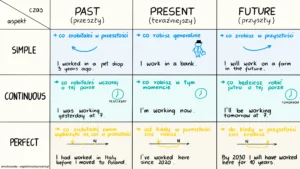 czas
aspekt
PAST
(przeszły)
PRESENT
(teraźniejszy)
FUTURE
(przyszły)
SIMPLE
→ co zrobiłam w przeszłości
I worked in a pet shop
3 years ago.
→ co robisz generalnie
I work in a bank.
I will work on a farm
in the future.
CONTINUOUS
→ co robiłaś wczoraj
o tej porze
YESTERDAY
I was working
yesterday at 7.
→ co robisz w tym
momencie
I'm working now.
→ co będziesz robić
jutro o tej porze
TOMORROW
I'll be working
tomorrow at 7.
PERFECT
I had worked in Italy
before I moved to Poland.
→ od kiedy w przeszłości
N
I've worked here
since 2020.
→ do kiedy w przyszłości
N
By 2030 I will have worked
here for 10 years.